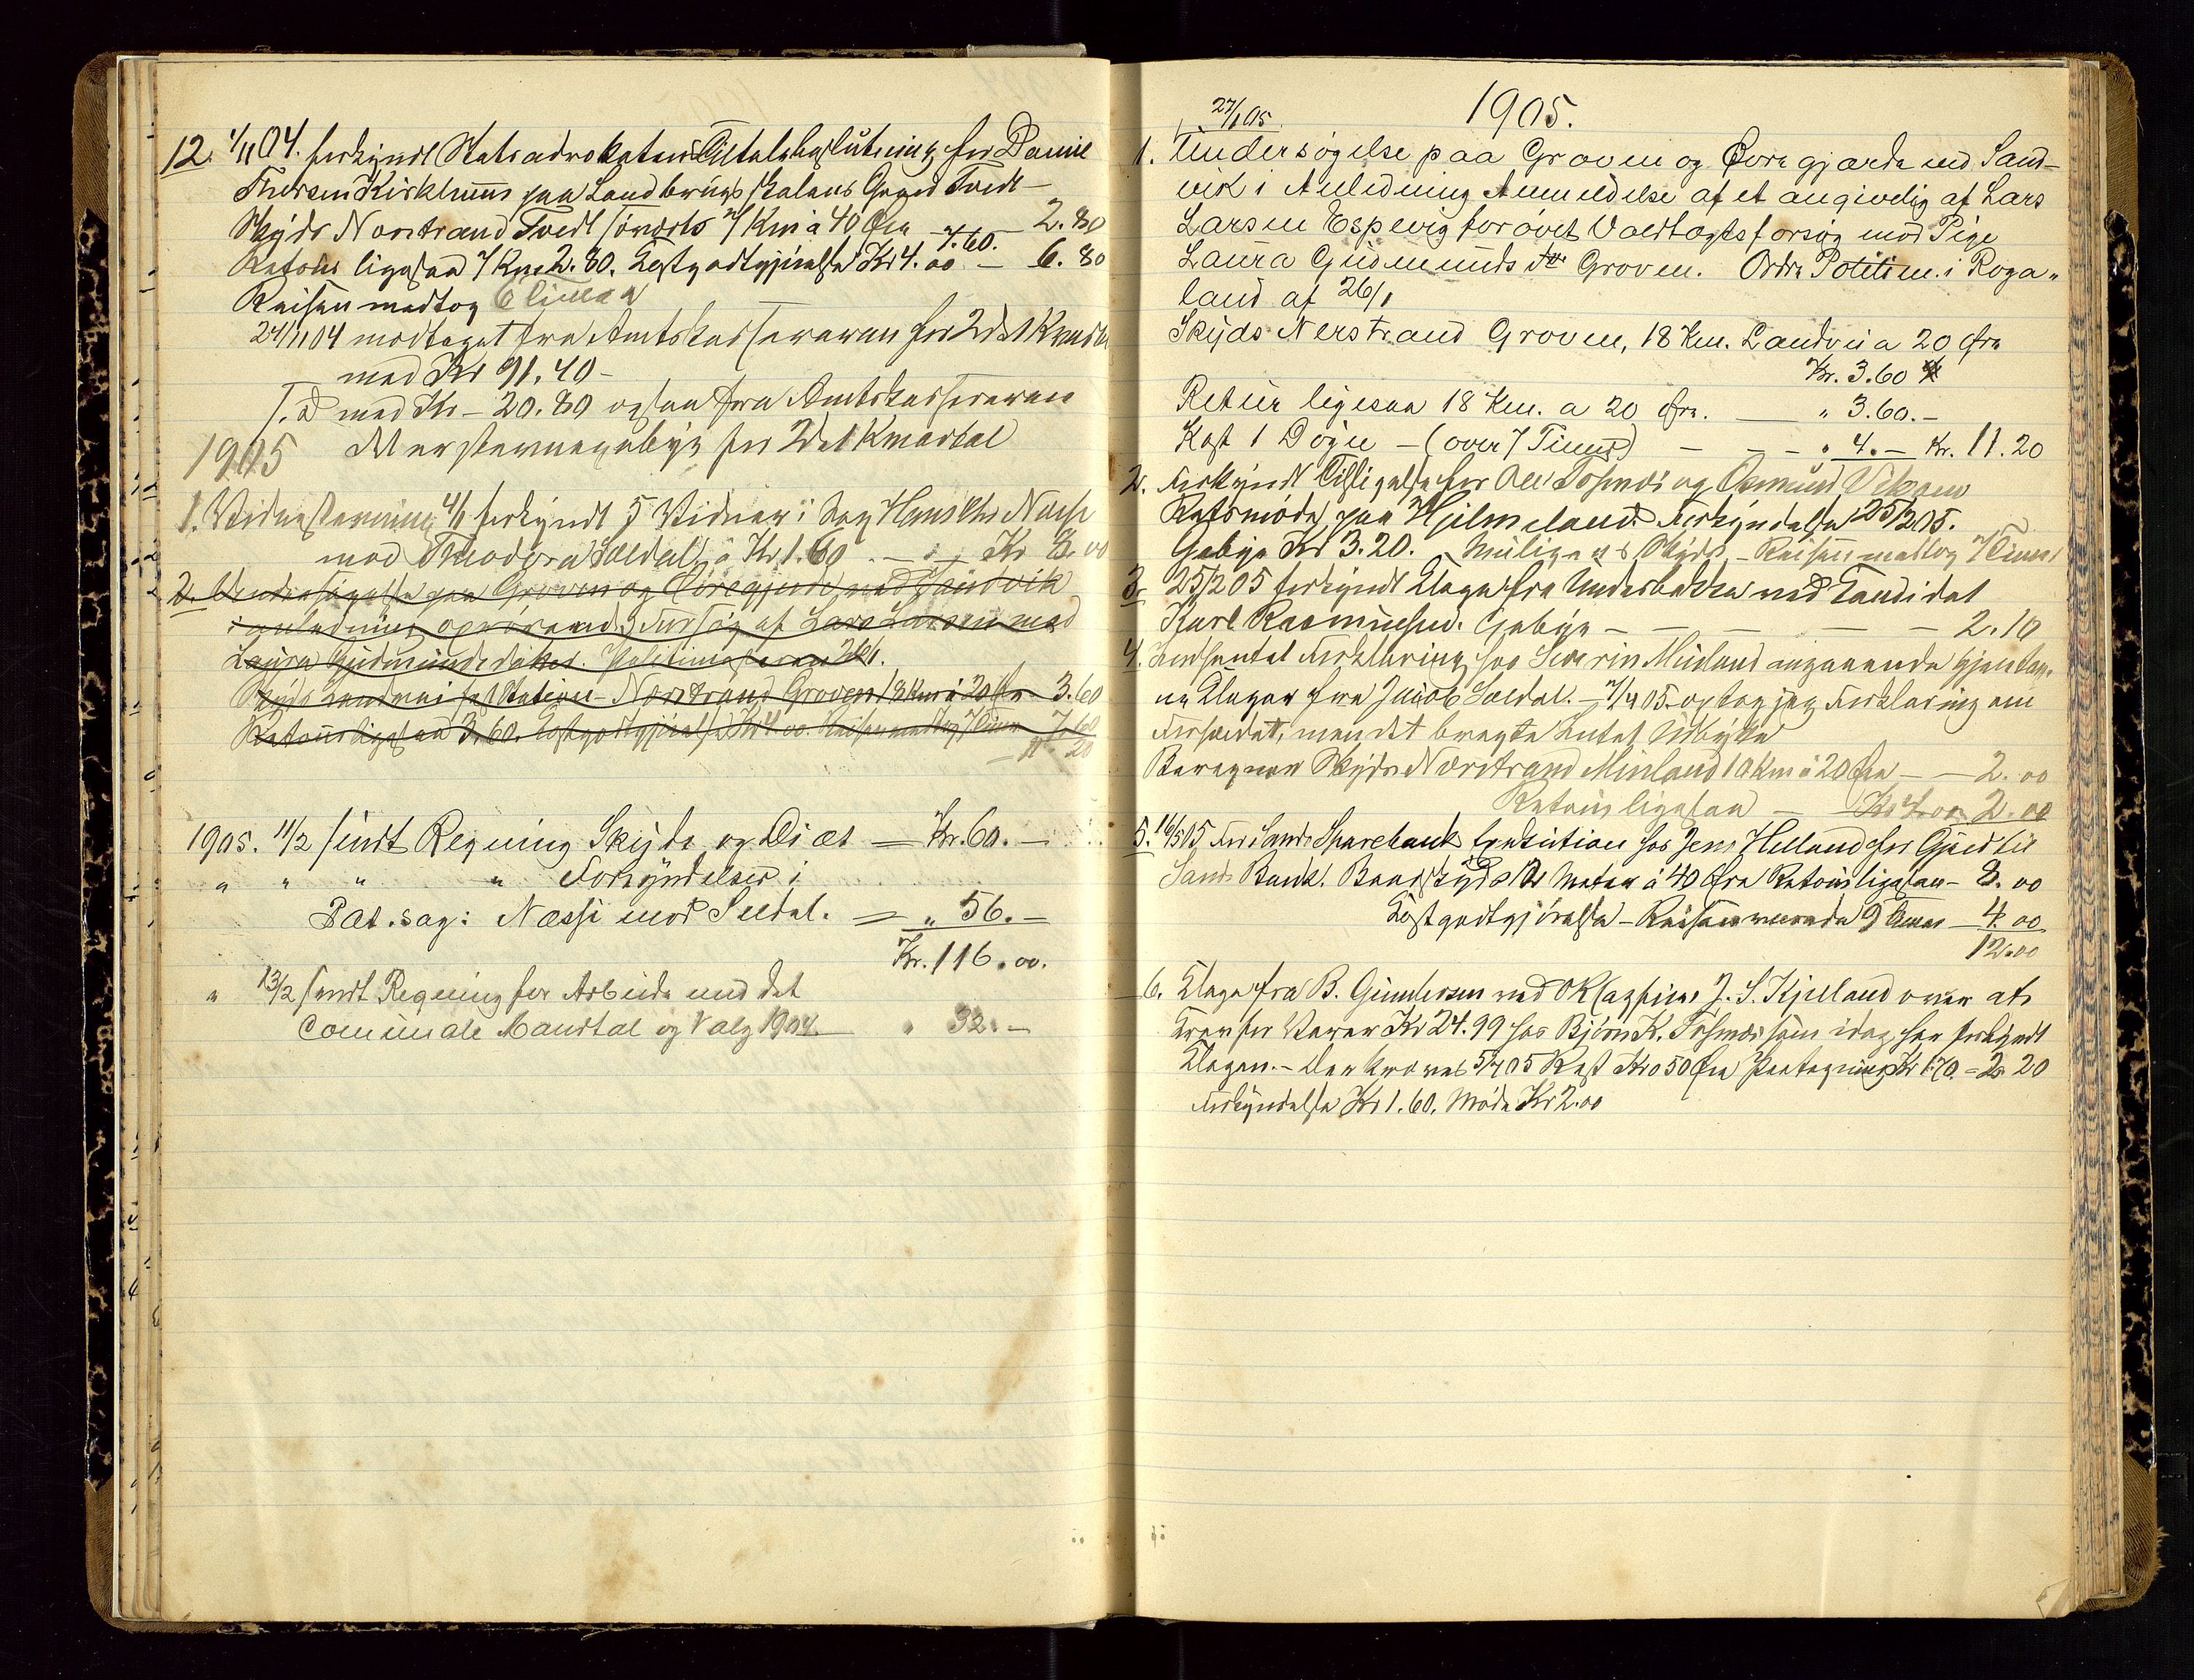 12. 1/11 04. forkyndt Statsadvokatens Tiltalebeslutning for Daniel
Thorsen Kirkhuus paa Landbrugsskolens Gaard Tvedt –
Skyds Nerstrand Tvedt søverts 7 Km à 40 Øre – 2.80
Retour ligesaa 7 Km 2.80. Kostgodtgjørelse Kr 4.00 – 6.80
Reisen medtog Timer
24/11 04 modtaget fra Amtskassereren for 2det Kvartal
med Kr 91.40 –
T. d. med Kr – 20.80 ogsaa fra Amtskassereren
1905
1. Vidnestevning 4/1 forkyndt 5 Vidner i Sag Hans Chr Næsse
mod Theodora Sældal, à Kr 1.60 – Kr 8.00
2. Undersøgelse paa Groven og Øvregjerde ved Sandvik
i anledning Forsøg af Lars Larsen mod
Laura Gudmundsdatter. Politimesteren 26/1.
Skyds Landvei fast Station – Nerstrand Groven 18 Km à 20 Øre 3.60
Retour ligesaa 3.60. Kostgodtgjørelse Kr 4.00. Reisen medtog 7 Timer 7.60
11 20
1905. 11/2 sendt Regning Skyds og Diæt — Kr. 60. –
" " " " Forkyndelser i
Pat. sag: Næsse mod Sældal. — " 56. –
Kr. 116.00.
" 13/2 sendt Regning for Arbeide med det
Comunale Mandtal og Valg 1904 — " 32. –
27/1 05
1905.
1. Undersøgelse paa Groven og Øvregjærde ved Sand-
vik i Anledning Anmeldelse af et angivelig af Lars
Larsen Espevig forøvet Voldtægtsforsøg mod Pige
Laura Gudmundsdtr Groven. Ordre Politim. i Roga-
land af 26/1
Skyds Nerstrand Groven, 18 Km. Landvei a 20 Øre
Kr. 3.60
Retur ligesaa 18 Km. a 20 Øre. — " 3.60. –
Kost 1 Døgn – (over 7 Timer) – – – " 4. – Kr. 11.20
2. Forkyndt Tilsigelse for Ole Tysmoi og Osmund
Retsmøde paa Hjelmeland. Forkyndelse 25/2 05.
Gebyr Kr 3.20. Skyds – Reisen medtog 7 Timer
3. 25/2 05 forkyndt Klage fra Underbakke ved Kandidat
Karl Rasmussen. Gebyr — — — — 2.10
4. Indhentet Forklaring hos Severin Meiland angaaende
en Klage fra Jacob Sældal. – 7/4 05 optog jeg Forklaring om
Forholdet, men det bragte intet Udbytte
Beregner Skyds Nerstrand Meiland 10 Km à 20 Øre – – 2.00
Retour ligesaa – Kr 4.00 2.00
5. 16/5 05 For Sands Sparebank Exekution hos Jens Helland for Gjæld til
Sands Bank. Baadskyds à 40 Øre Retour ligesaa – 8.00
Kostgodtgjørelse – Reisen varede 9 Timer – 4.00
12.00
6. Klage fra B. Gundersen ved O R Sagfører J. S. Kjelland over at
Krav for Varer Kr 24.99 hos Bjørn K. Tysmoi som idag har forkyndt
Klagen. – 5/7 05 Kost Kr 0 50 Øre Paategning Kr 1.70. = 2. 20
Forkyndelse Kr 1.60. Møde Kr 2.00